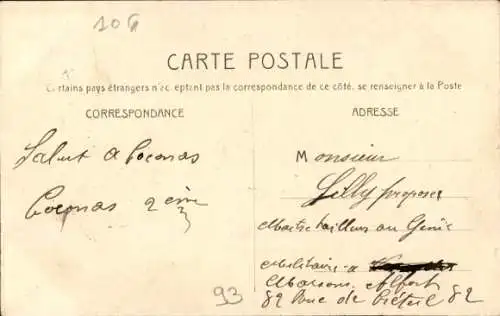 106
CARTE POSTALE
Certains pays étrangers n'acceptant pas la correspondance de ce côté, se renseigner à la Poste
CORRESPONDANCE
ADRESSE
Salut a Coconas
Coconas 2 ème
Monsieur
Lilly proposer
Maitre tailleur au Génie
Militaire a
Maisons Alfort
82 Rue de Créteil 82
93